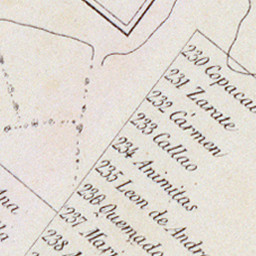 230 Copacab
231 Zarate
232 Carmen
233 Callao
234 Animitas
235 Leon de Andr
236 Quemado
237 Mari
238